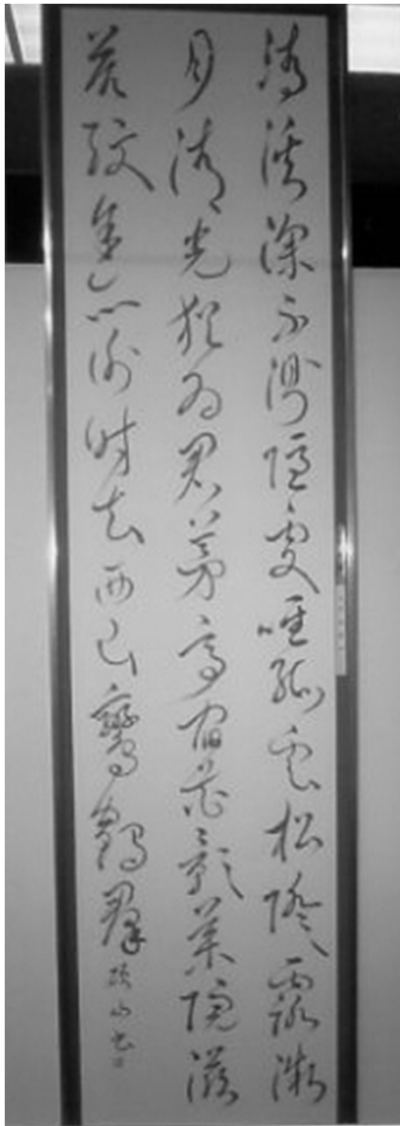 清溪深不測隱處唯孤雲松際露微
月清光猶為君茅亭宿花影藥院滋
苔紋余亦謝時去西山鸞鶴群 山書